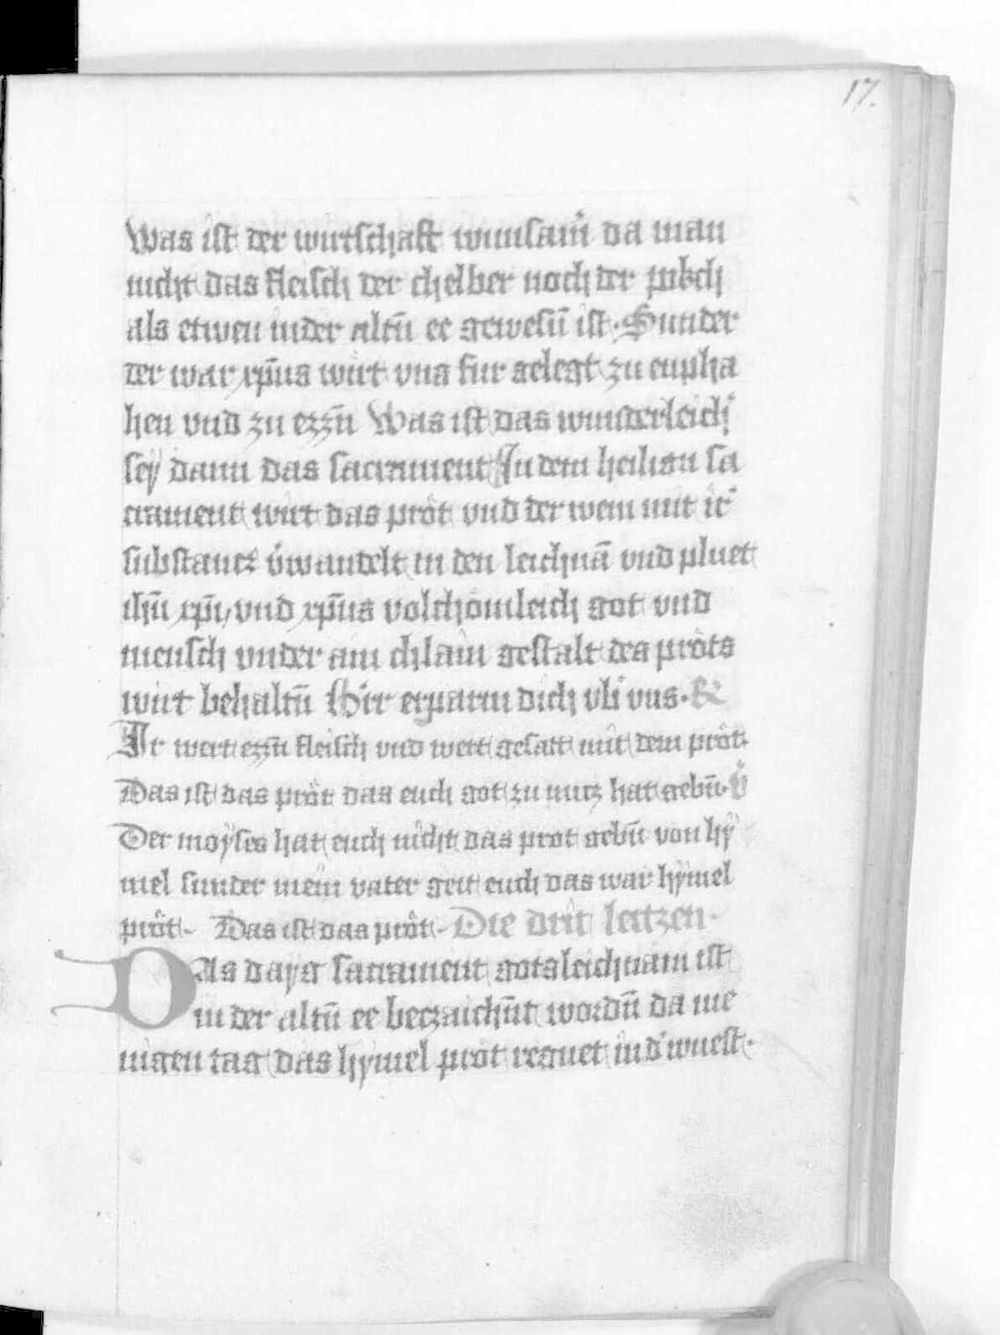 17.
Was ist der wirtschaft wunsam̄ da man
nicht das fleisch der chelber noch der pökch
als etwen in der altn̄ ee gewesn̄ ist · Sunder
der war xp̄us wirt vns fur gelegt zu enpha
hen vnd zu ezzn̄ Was ist das wunderleich̾
sey dann das sacrament In dem heilign̄ sa
crament wirt das pröt vnd der wein mit ir̾
substantz v̾wandelt in den leichnā vnd pluet
ihū xp̄i vnd xp̄us volchömleich got vnd
mensch vnder ain chlain gestalt des pröts
wirt behaltn̄ H̾ir erparm dich vb̾ vns · R̾
Ir wert ezzn̄ fleisch vnd wert gesatt mit dem pröt.
Das ist das pröt das euch got zu nutz hat gebn̄ · v̾
Der moyses hat euch nicht das prot gebn̄ von hy̾
mel sunder mein vater geit euch das war hymel
pröt · Das ist das pröt · Die drit leitzen ·
Das dayg sacrament gotsleichnam ist
in der altn̄ ee beczaichn̄t wordn̄ da me
nigen tag das hymel prot regnet in d̾ wuest ·